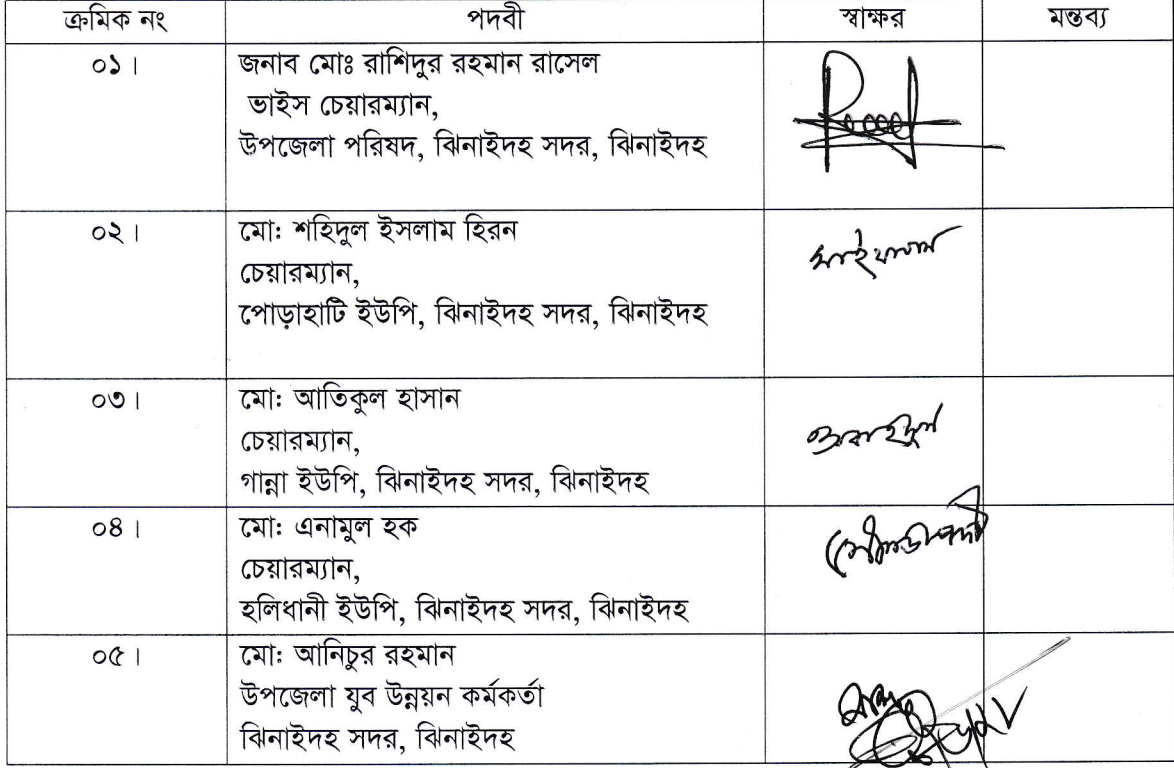 ক্রমিক নং পদবী স্বাক্ষর মন্তব্য
০১। জনাব মোঃ রাশিদুর রহমান রাসেল
ভাইস চেয়ারম্যান,
উপজেলা পরিষদ, ঝিনাইদহ সদর, ঝিনাইদহ
০২। মো: শহিদুল ইসলাম হিরন
চেয়ারম্যান,
পোড়াহাটি ইউপি, ঝিনাইদহ সদর, ঝিনাইদহ
০৩। মো: আতিকুল হাসান
চেয়ারম্যান,
গান্না ইউপি, ঝিনাইদহ সদর, ঝিনাইদহ
০৪। মো: এনামুল হক
চেয়ারম্যান,
হলিধানী ইউপি, ঝিনাইদহ সদর, ঝিনাইদহ
০৫। মো: আনিচুর রহমান
উপজেলা যুব উন্নয়ন কর্মকর্তা
ঝিনাইদহ সদর, ঝিনাইদহ